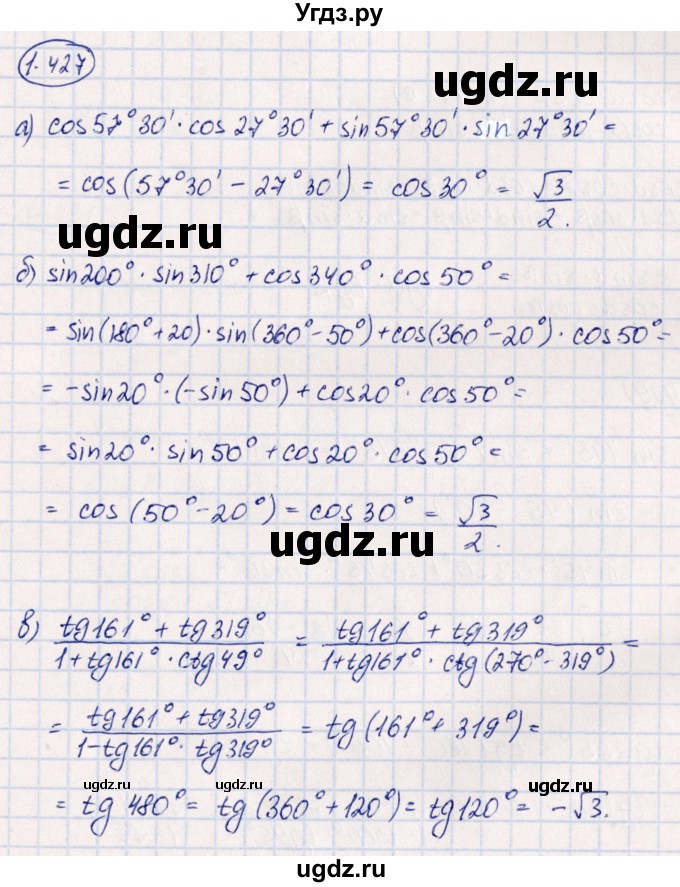 Угдз.ру
1.427
ugdz.ru
а) cos57°30'·cos27°30'+sin57°30'·sin27°30'=
= cos(57°30' − 27°30') = cos30° = √3/2.
ugdz.ru
б) sin200°·sin310°+cos340°·cos50°=
= sin(180°+20)·sin(360°−50°)+cos(360°−20°)·cos50°=
= −sin20°·(−sin50°)+cos20°·cos50°=
= sin20°·sin50°+cos20°·cos50°=
= cos(50°−20°)=cos30° = √3/2.
ugdz.ru
в) (tg161°+tg319°)/(1+tg161°·ctg49°) = (tg161°+tg319°)/(1+tg161°·ctg(270°−319°)) =
= (tg161°+tg319°)/(1−tg161°·tg319°) = tg(161°+319°)=
ugdz.ru ugdz.ru
= tg480°= tg(360°+120°)=tg120°= −√3.
ugdz.ru